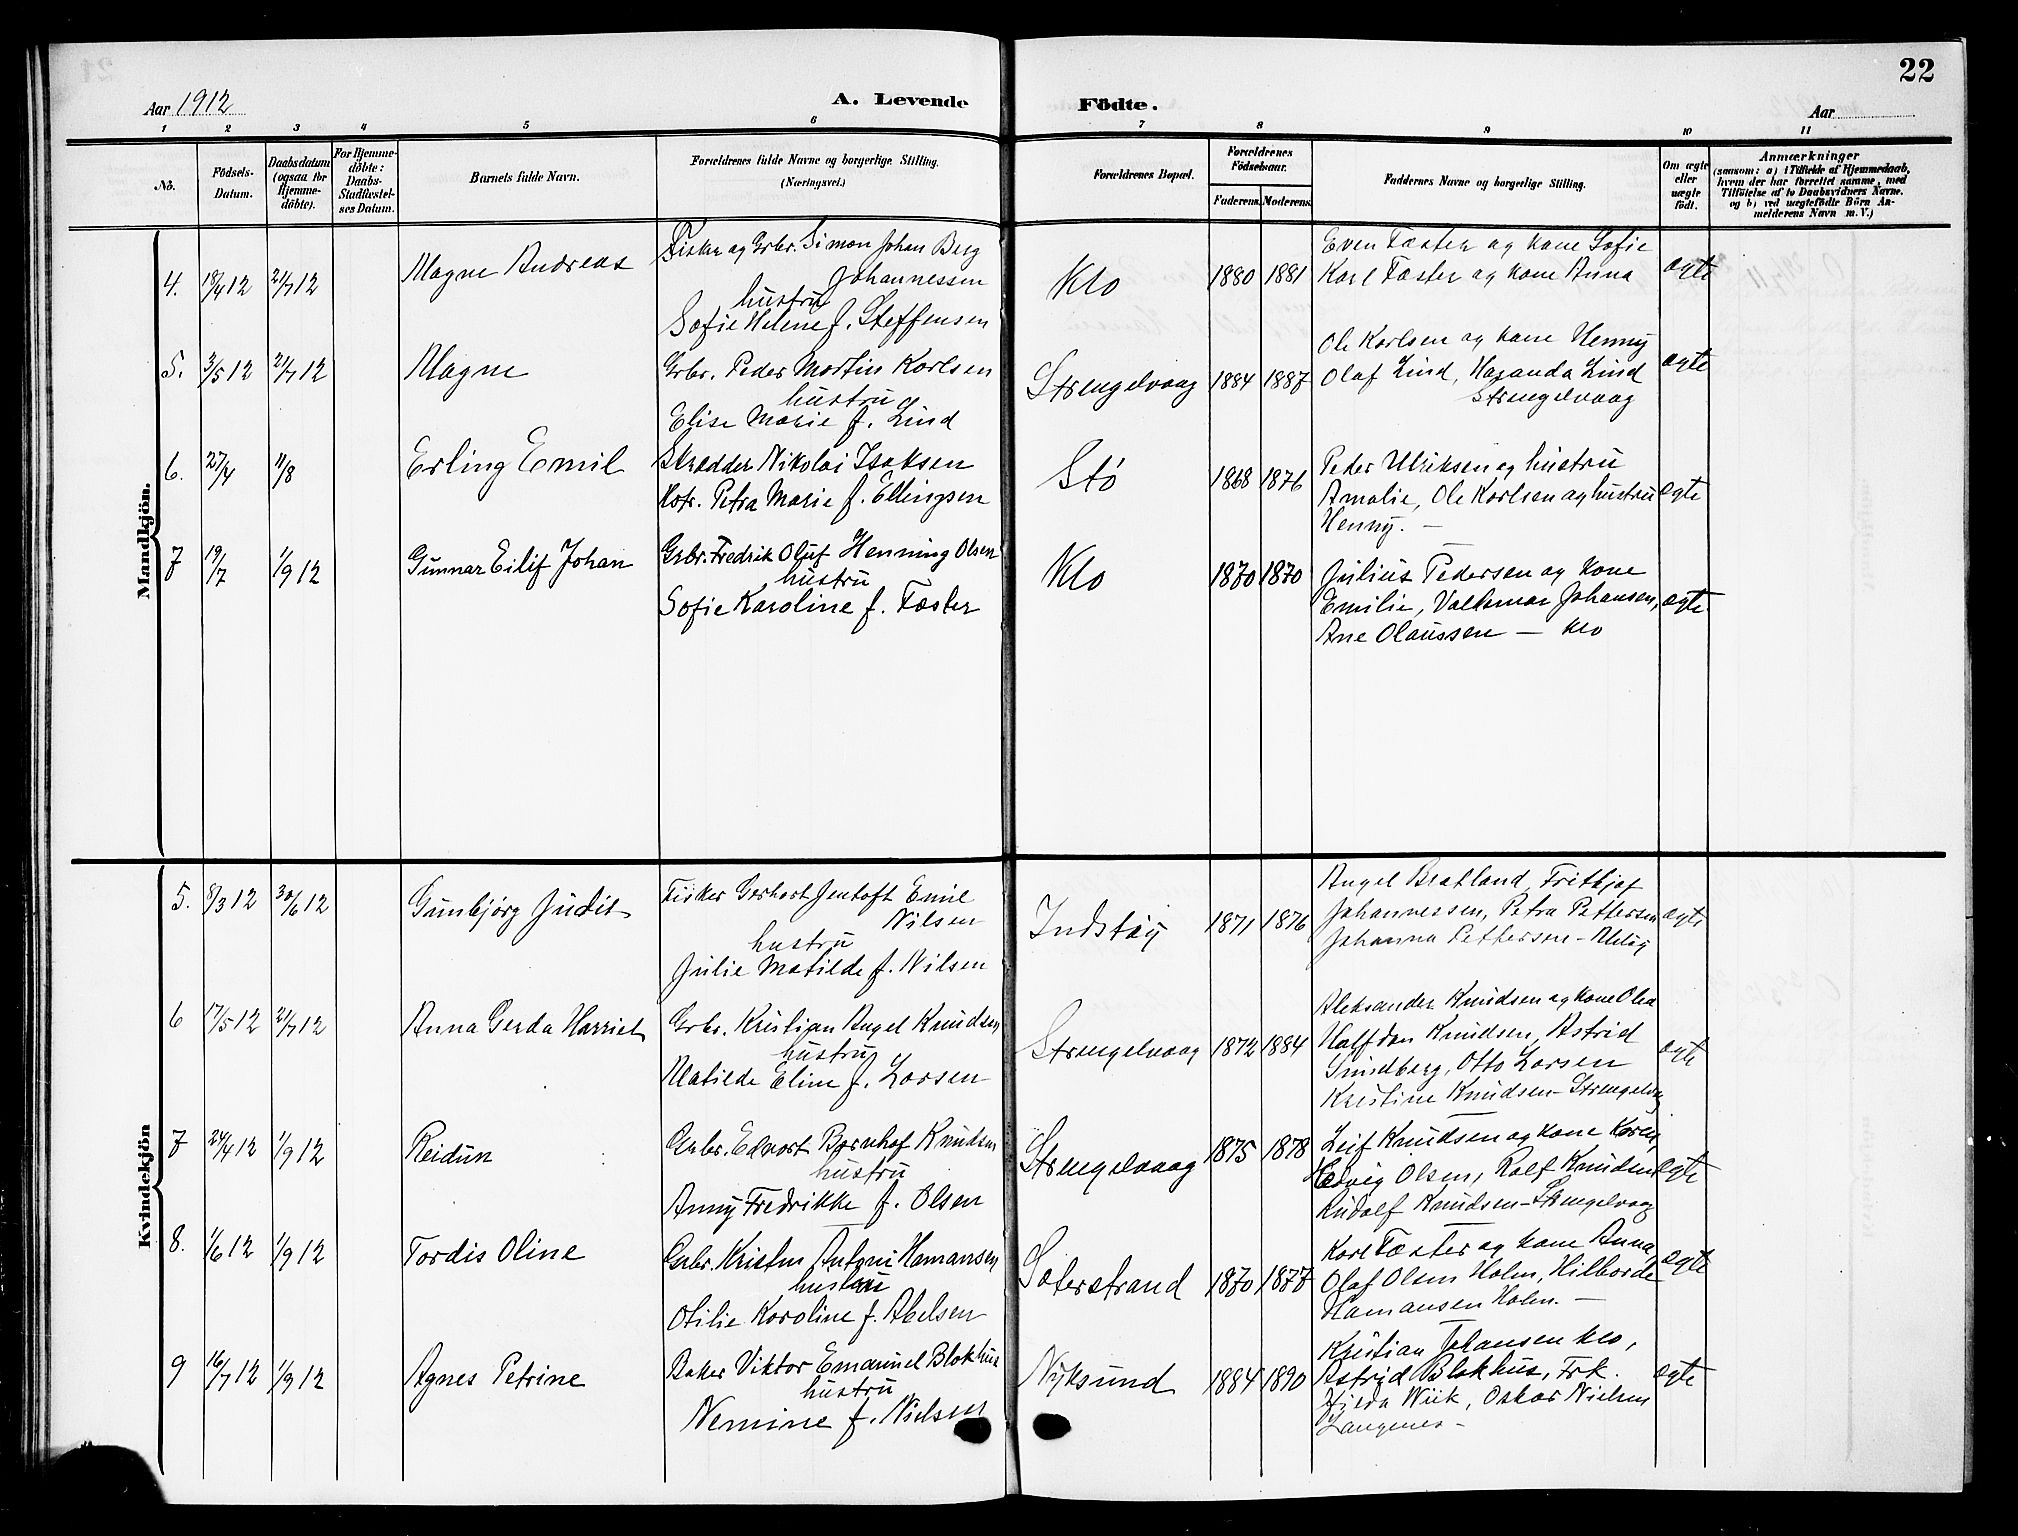 22
Aar 1912
A. Levende
Födte.
Aar
1 2 3 4 5 6 7 8 9 10 11
No.
Födsels-Datum.
Daabsdatum (ogsaa for Hjemme-döbte).
For Hjemme-döbte: Daabs-Stadfæstel-ses Datum.
Barnets fulde Navn.
Forældrenes fulde Navne og borgerlige Stilling. (Næringsvei.)
Forældrenes Bopæl.
Forældrenes Födselsaar.
Faderens. Moderens.
Faddernes Navne og borgerlige Stilling.
Om ægte eller uægte födt.
Anmærkninger
(saasom: a) i Tilfælde af Hjemmedaab, hvem der har forrettet samme, med Tilföielse af to Daabsvidners Navne. og b) ved uægtefödte Börn An-melderens Navn m. V.)
Mandkjön.
4. 18/4 12 21/7 12 Magne Andreas
Fisker og Grbr. Simon Johan Berg
Johannessen
hustru
Sofie Helene f. Steffensen
Klo 1880 1881
Even Fæster og kone Sofie
Karl Fæster og kone Anna
ægte
5. 3/5 12 21/7 12 Magne
Grbr. Peder Martin Karlsen
hustru
Elise Marie f. Lind
Strengelvaag 1884 1887
Ole Karlsen og kone Henny
Olaf Lind, Haganda Lind
Strengelvaag
ægte
6. 27/4 11/8 Erling Emil
Skrædder Nikolai Isaksen
Hstr. Petra Marie f. Ellingsen
Stø 1868 1876
Peder Ulriksen og hustru
Amalie, Ole Karlsen og hustru
Henny. —
ægte
7 19/7 1/9 12 Gunnar Eilif Johan
Grbr. Fredrik Oluf Henning Olsen
hustru
Sofie Karoline f. Fæster
Klo 1870 1870
Julius Pedersen og kone
Emilie, Valdemar Johansen,
Ane Olaussen — Klo
ægte
Kvindekjön
5. 8/3 12 30/6 12 Gunbjørg Judit
Fisker Gerhart Jentoft Emil
Nilsen
hustru
Julie Matilde f. Nilsen
Indstøy 1871 1876
Angel Bratland, Fritkjof
Johannessen, Petra Pettersen
Johanna Pettersen -
ægte
6 17/5 12 21/7 12 Anna Gerda Harriet
Grbr. Kristian Angel Knudsen
hustru
Matilde Eline f. Larsen
Strengelvaag 1872 1884
Aleksander Knudsen og kone Olea
Halfdan Knudsen, Astrid
Sundberg, Otto Larsen
Kristine Knudsen - Strengelvag
ægte
7 24/4 12 1/9 12 Reidun
Grbr. Edvart Bernhof Knudsen
hustru
Anny Fredrikke f. Olsen
Strengelvaag 1875 1878
Leif Knudsen og kone Karen,
Hedvig Olsen, Rolf Knudsen
Rudolf Knudsen - Strengelvaag
ægte
8. 1/6 12 1/9 12 Tordis Oline
Grbr. Kristen Antoni Hamansen
hustru
Otilie Karoline f. Abelsen
Sæterstrand 1870 1877
Karl Fæster og kone Anna,
Olaf Olsen Holm, Hilborde
Hamansen Holm. —
ægte
9 16/7 12 1/9 12 Agnes Petrine
Baker Viktor Emanuel Blokhus
hustru
Nemine f. Nielsen
Nyksund 1884 1890
Kristian Johansen Klo,
Astrid Blokhus, Frk.
Wiik, Oskar Nielsen
Langenes -
ægte